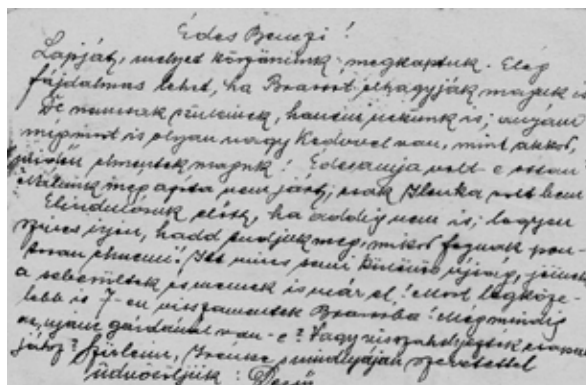 Édes Benczi!
Lapját, melyet köszönünk, megkaptuk. Elég
fájdalmas lehet, ha Brassót elhagyják maguk is
De nemcsak szüleinek, hanem nekünk is,
mint is olyan nagy kedvvel van, mint akkor,
elmentek maguk! Édesanyja volt-e
Nálunk még apóka nem járt, csak Ilonka volt benn
Elindulónk előtt, ha addig nem is, legyen
szíves írjon, hadd tudjuk meg, mikor fognak pon-
tosan elmenni! Itt nincs semmi különös újság, jönnek
a sebesültek és mennek is már el! Most legköze-
lebb is 7-en visszamentek Brassóba! Még mindig
az új gárdával van-e? Vagy
jár? Szüleim, Irénke mindnyájan szeretettel
üdvözöljük: Dezső